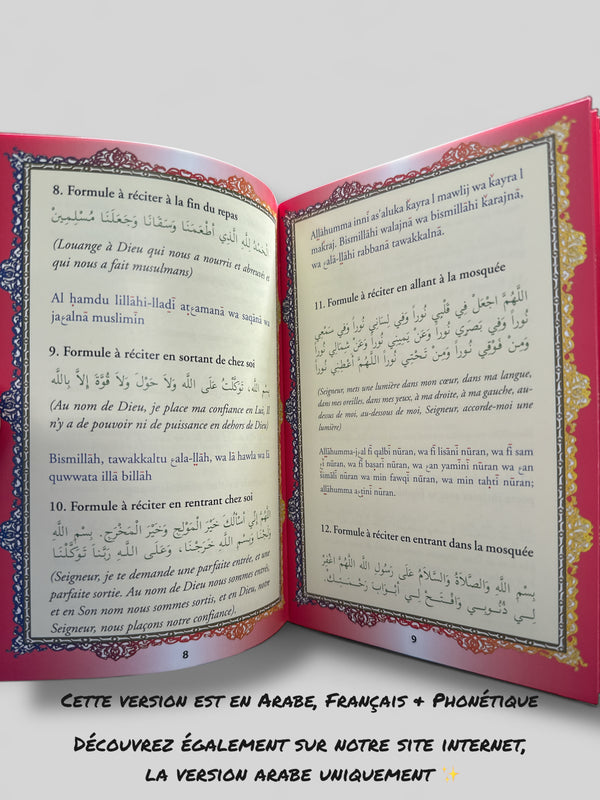 8. Formule à réciter à la fin du repas
اَلْحَمْدُ لِلَّهِ الَّذِي أَطْعَمَنَا وَسَقَانَا وَجَعَلَنَا مُسْلِمِينْ
(Louange à Dieu qui nous a nourris et abreuvés et
qui nous a fait musulmans)
Al ḥamdu lillāhi-lladī aṭعamanā wa saqānā wa
jaعalnā muslimīn
9. Formule à réciter en sortant de chez soi
بِسْمِ اللَّه، تَوَكَّلْتُ عَلَى اللَّه وَلاَ حَوْلَ وَلاَ قُوَّةَ إِلاَّ بِاللَّه
(Au nom de Dieu, je place ma confiance en Lui, Il
n'y a de pouvoir ni de puissance en dehors de Dieu)
Bismillāh, tawakkaltu عala-llāh, wa lā hawla wa lā
quwwata illā billāh
10. Formule à réciter en rentrant chez soi
اللَّهُمَّ إِنِّي أَسْأَلُكَ خَيْرَ الْمَوْلِجِ وَخَيْرَ الْمَخْرَجِ. بِسْمِ اللَّهِ
وَلَجْنَا وَبِسْمِ اللَّهِ خَرَجْنَا، وَعَلَى اللَّهِ رَبِّنَا تَوَكَّلْنَا
(Seigneur, je te demande une parfaite entrée, et une
parfaite sortie. Au nom de Dieu nous sommes entrés,
et en Son nom nous sommes sortis, et en Dieu, notre
Seigneur, nous plaçons notre confiance).
8
Allāhumma innī as'aluka ḱayra l mawlij wa ḱayra l
maḱraj. Bismillāhi walajnā wa bismillāhi ḱarajnā,
wa عalā-llāhi rabbanā tawakkalnā.
11. Formule à réciter en allant à la mosquée
اللَّهُمَّ اجْعَلْ فِي قَلْبِي نُوراً وَفِي لِسَانِي نُوراً وَفِي سَمْعِي
نُوراً وَفِي بَصَرِي نُوراً وَعَنْ يَمِينِي نُوراً وَعَنْ شِمَالِي نُوراً
وَمِنْ فَوْقِي نُوراً وَمِنْ تَحْتِي نُوراً اللَّهُمَّ أَعْطِنِي نُوراً
(Seigneur, mets une lumière dans mon cœur, dans ma langue,
dans mes oreilles, dans mes yeux, à ma droite, à ma gauche, au-
dessus de moi, au-dessous de moi, Seigneur, accorde-moi une
lumière)
Allāhumma-jعal fī qalbī nūran, wa fī lisānī nūran, wa fī sam
عī nūran, wa fī baṣarī nūran, wa عan yamīnī nūran wa عan
šimālī nūran, wa min fawqī nūran wa min taḥtī nūran;
allāhumma aعṭinī nūran.
12. Formule à réciter en entrant dans la mosquée
بِسْمِ اللَّهِ وَالصَّلاَةُ وَالسَّلاَمُ عَلَى رَسُولِ اللَّهِ اللَّهُمَّ اغْفِرْ
لِـي ذُنُـوبِـي وَافْتَـحْ لِـي أَبْـوَابَ رَحْمَتِـكَ.
9
Cette version est en Arabe, Français & Phonétique
Découvrez également sur notre site internet,
la version arabe uniquement ✨